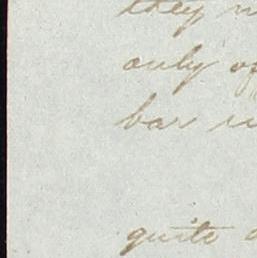 they
only of
bar
quite